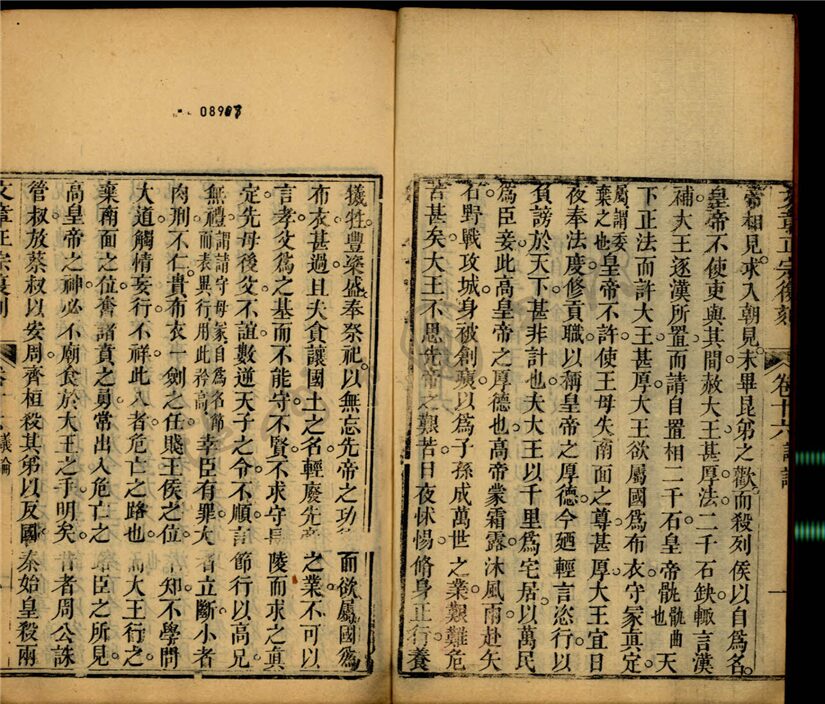 文章正宗復刻 卷十六
常相見求入朝見未畢昆弟之歡而殺列侯以自爲名
皇帝不使吏與其間赦大王甚厚法二千石缺輙言漢
補大王逐漢所置而請自置相二千石皇帝骫骫曲也天
下正法而許大王甚厚大王欲屬國爲布衣守冢真定
屬謂委棄之也皇帝不許使王毋失南面之尊甚厚大王宜日
夜奉法度修貢職以稱皇帝之厚德今廼輕言恣行以
負謗於天下甚非計也夫大王以千里爲宅居以萬民
爲臣妾此高皇帝之厚德也高帝蒙霜露沐風雨赴矢
石野戰攻城身被創痍以爲子孫成萬世之業艱難危
苦甚矣大王不思先帝之艱苦日夜怵惕脩身正行養
08903
犧牲豐粢盛奉祭祀以無忘先帝之功而欲屬國爲
布衣甚過且夫貪讓國土之名輕廢先之業不可以
言孝父爲之基而不能守不賢不求守長陵而求之真
定先母後父不誼數逆天子之令不順言節行以高兄
無禮謂請守母冢自爲名節而表異行用此矜高幸臣有罪大者立斷小者
肉刑不仁貴布衣一劍之任賤王侯之位不知不學問
大道觸情妄行不祥此八者危亡之路也大王行之
棄南面之位奮諸賁之勇常出入危亡之路臣之所見
高皇帝之神必不廟食於大王之手明矣昔者周公誅
管叔放蔡叔以安周齊桓殺其弟以反國秦始皇殺兩
文章正宗復刻 卷十六 議論